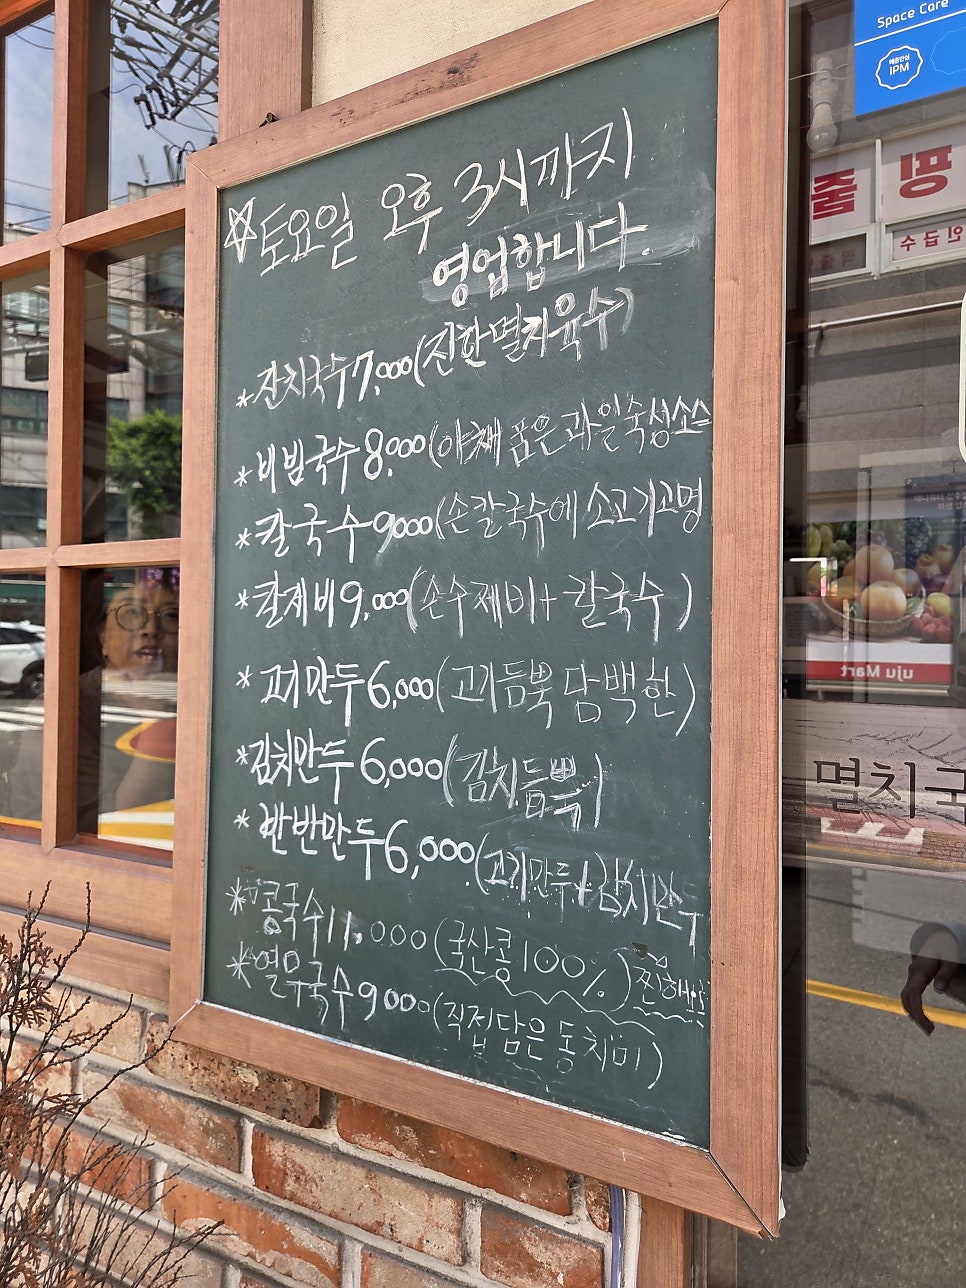 ☆토요일 오후 3시까지
영업합니다.
*잔치국수 7,000(진한멸치육수)
*비빔국수 8,000(야채 품은 과일숙성소스
*칼국수 9000(손칼국수에 소고기고명
*칼제비 9,000(손수제비+칼국수)
*고기만두 6,000(고기듬뿍 담백한)
*김치만두 6,000(김치듬뿍)
*반반만두 6,000.(고기만두+김치만두
*콩국수 11,000(국산콩100%)찐해요
*열무국수 9000(직접담은 동치미)
Space Care
해충안심
IPM
핑
줄
인급수
uju Mart
멸치국